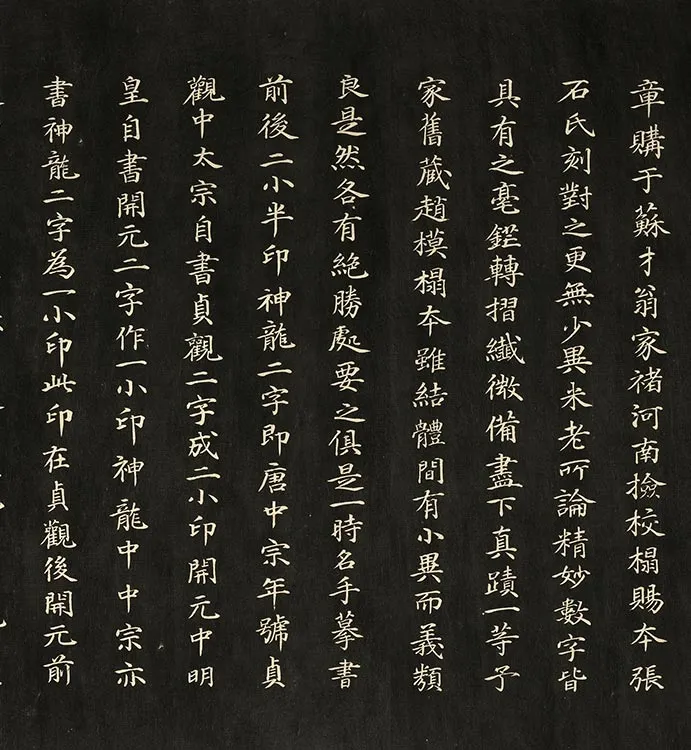 章購于蘇才翁家褚河南撿校榻賜本張
石氏刻對之更無少異米老所論精妙數字皆
具有之毫鋩轉摺纖微備盡下真蹟一等予
家舊蔵趙模榻本雖結體間有小異而義類
良是然各有絶勝處要之俱是一時名手摹書
前後二小半印神龍二字即唐中宗年號貞
觀中太宗自書貞觀二字成二小印開元中明
皇自書開元二字作一小印神龍中中宗亦
書神龍二字為一小印此印在貞觀後開元前